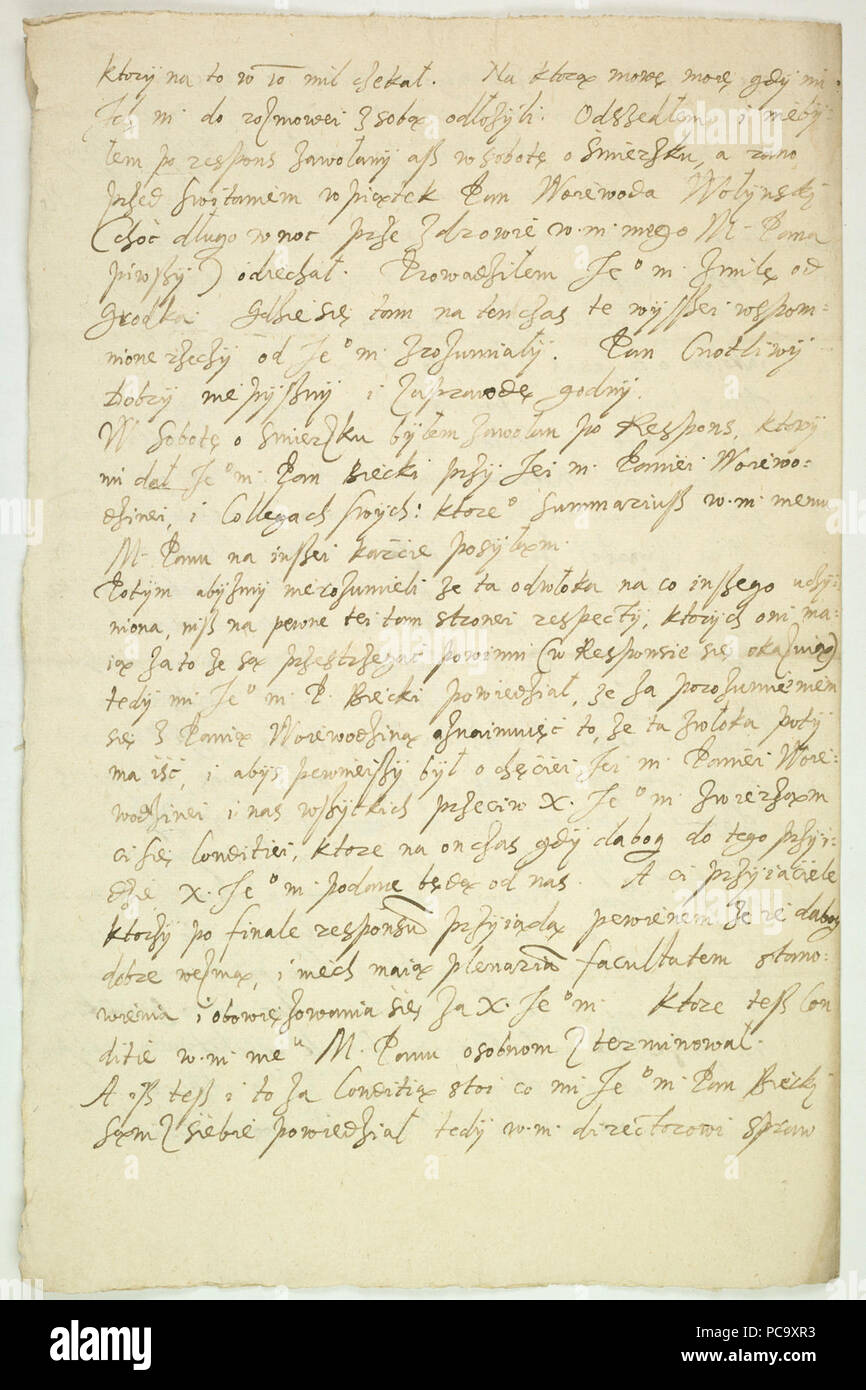 ktory na to w 10 mil czekał. Na ktorą mowę moię gdy mi
Ich m. do rozmowei z sobą odłożyli. Odszedłem, i nieby-
łem po respons zawołany asz w sobotę o smierzku, a rano
przed switaniem w piątek Pan Woiewoda Wołynsky
(choc długo w noc prze zdrowie w. m. mego M. Pana
piwszy) odiechał. Prowadziłem Je° m. z milę od
Grodka. Gdzie się tam na tenczas te wysszei wspom-
nione rzeczy od Je° m. zrozumiały. Pan Cnotliwy
Dobry niepyszny i zaprawdę godny.
W Sobotę o smierzku byłem zawołan po Respons, ktory
mi dał Je° m. Pan Biecki przy Jei m. Paniei Woiewo-
dzinei, i Collegach swych: ktore° summariusz w. m. memu
M. Panu na inszei karcie posyłam.
Potym abysmy nierozumieli ze ta odwłoka na co inszego uczy-
niona, nisz na pewne tei tam stronei respecty, ktorych oni ma-
ią za to ze są przestrzegać powinni (w Responsie się okazuią)
tedy mi Je° m. P. Biecki powiedział, ze za porozumieniem
się z Panią Woiewodziną oznaimuięć to, ze ta zwłoka poty
ma isć, i abys pewnieiszy był o chęciei Jei m. Paniei Woie-
wodzinei i nas wszytkich przeciw X. Je° m. zwierzam
ci się Conditiei, ktore na on czas gdy da bog do tego przyi-
dzie X. Je° m. podane będą od nas. A ci przyiaciele
ktorzy po finale responsum przyiadą pewienem ze ie da bog
dobrze wezmą, i niech maią plenariam facultatem stano-
wienia i obowięzowania się za X. Je° m. Ktore tesz Con
ditie w. m. me^u M. Panu osobnom zterminował.
A isz tesz i to za Conditią stoi co mi Je° m. Pan Biecky
sąm z siebie powiedział tedy w. m. directorowi spraw
alamy
a
alamy stock photo
PC9XR3
www.alamy.com